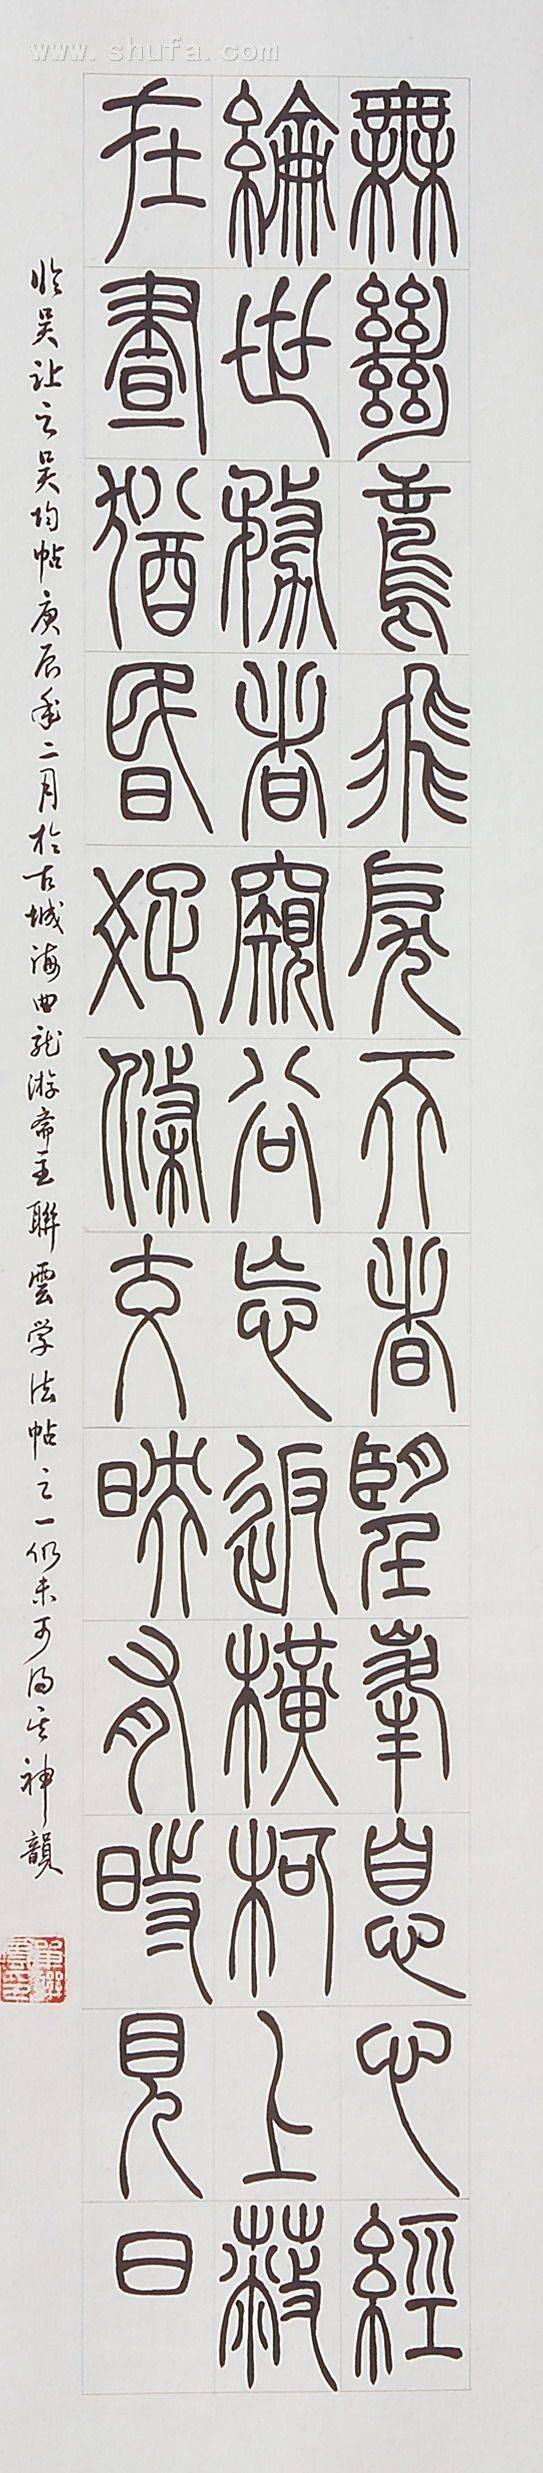 www.shufa.com
無絕鳶飛戾天者望峯息心經
綸世務者窺谷忘返橫柯上蔽
在晝猶昏疏條交映有時見日
临吴让之吴均帖庚辰年二月於古城海曲龙游斋主聯雲学法帖之一仍未可得其神韻